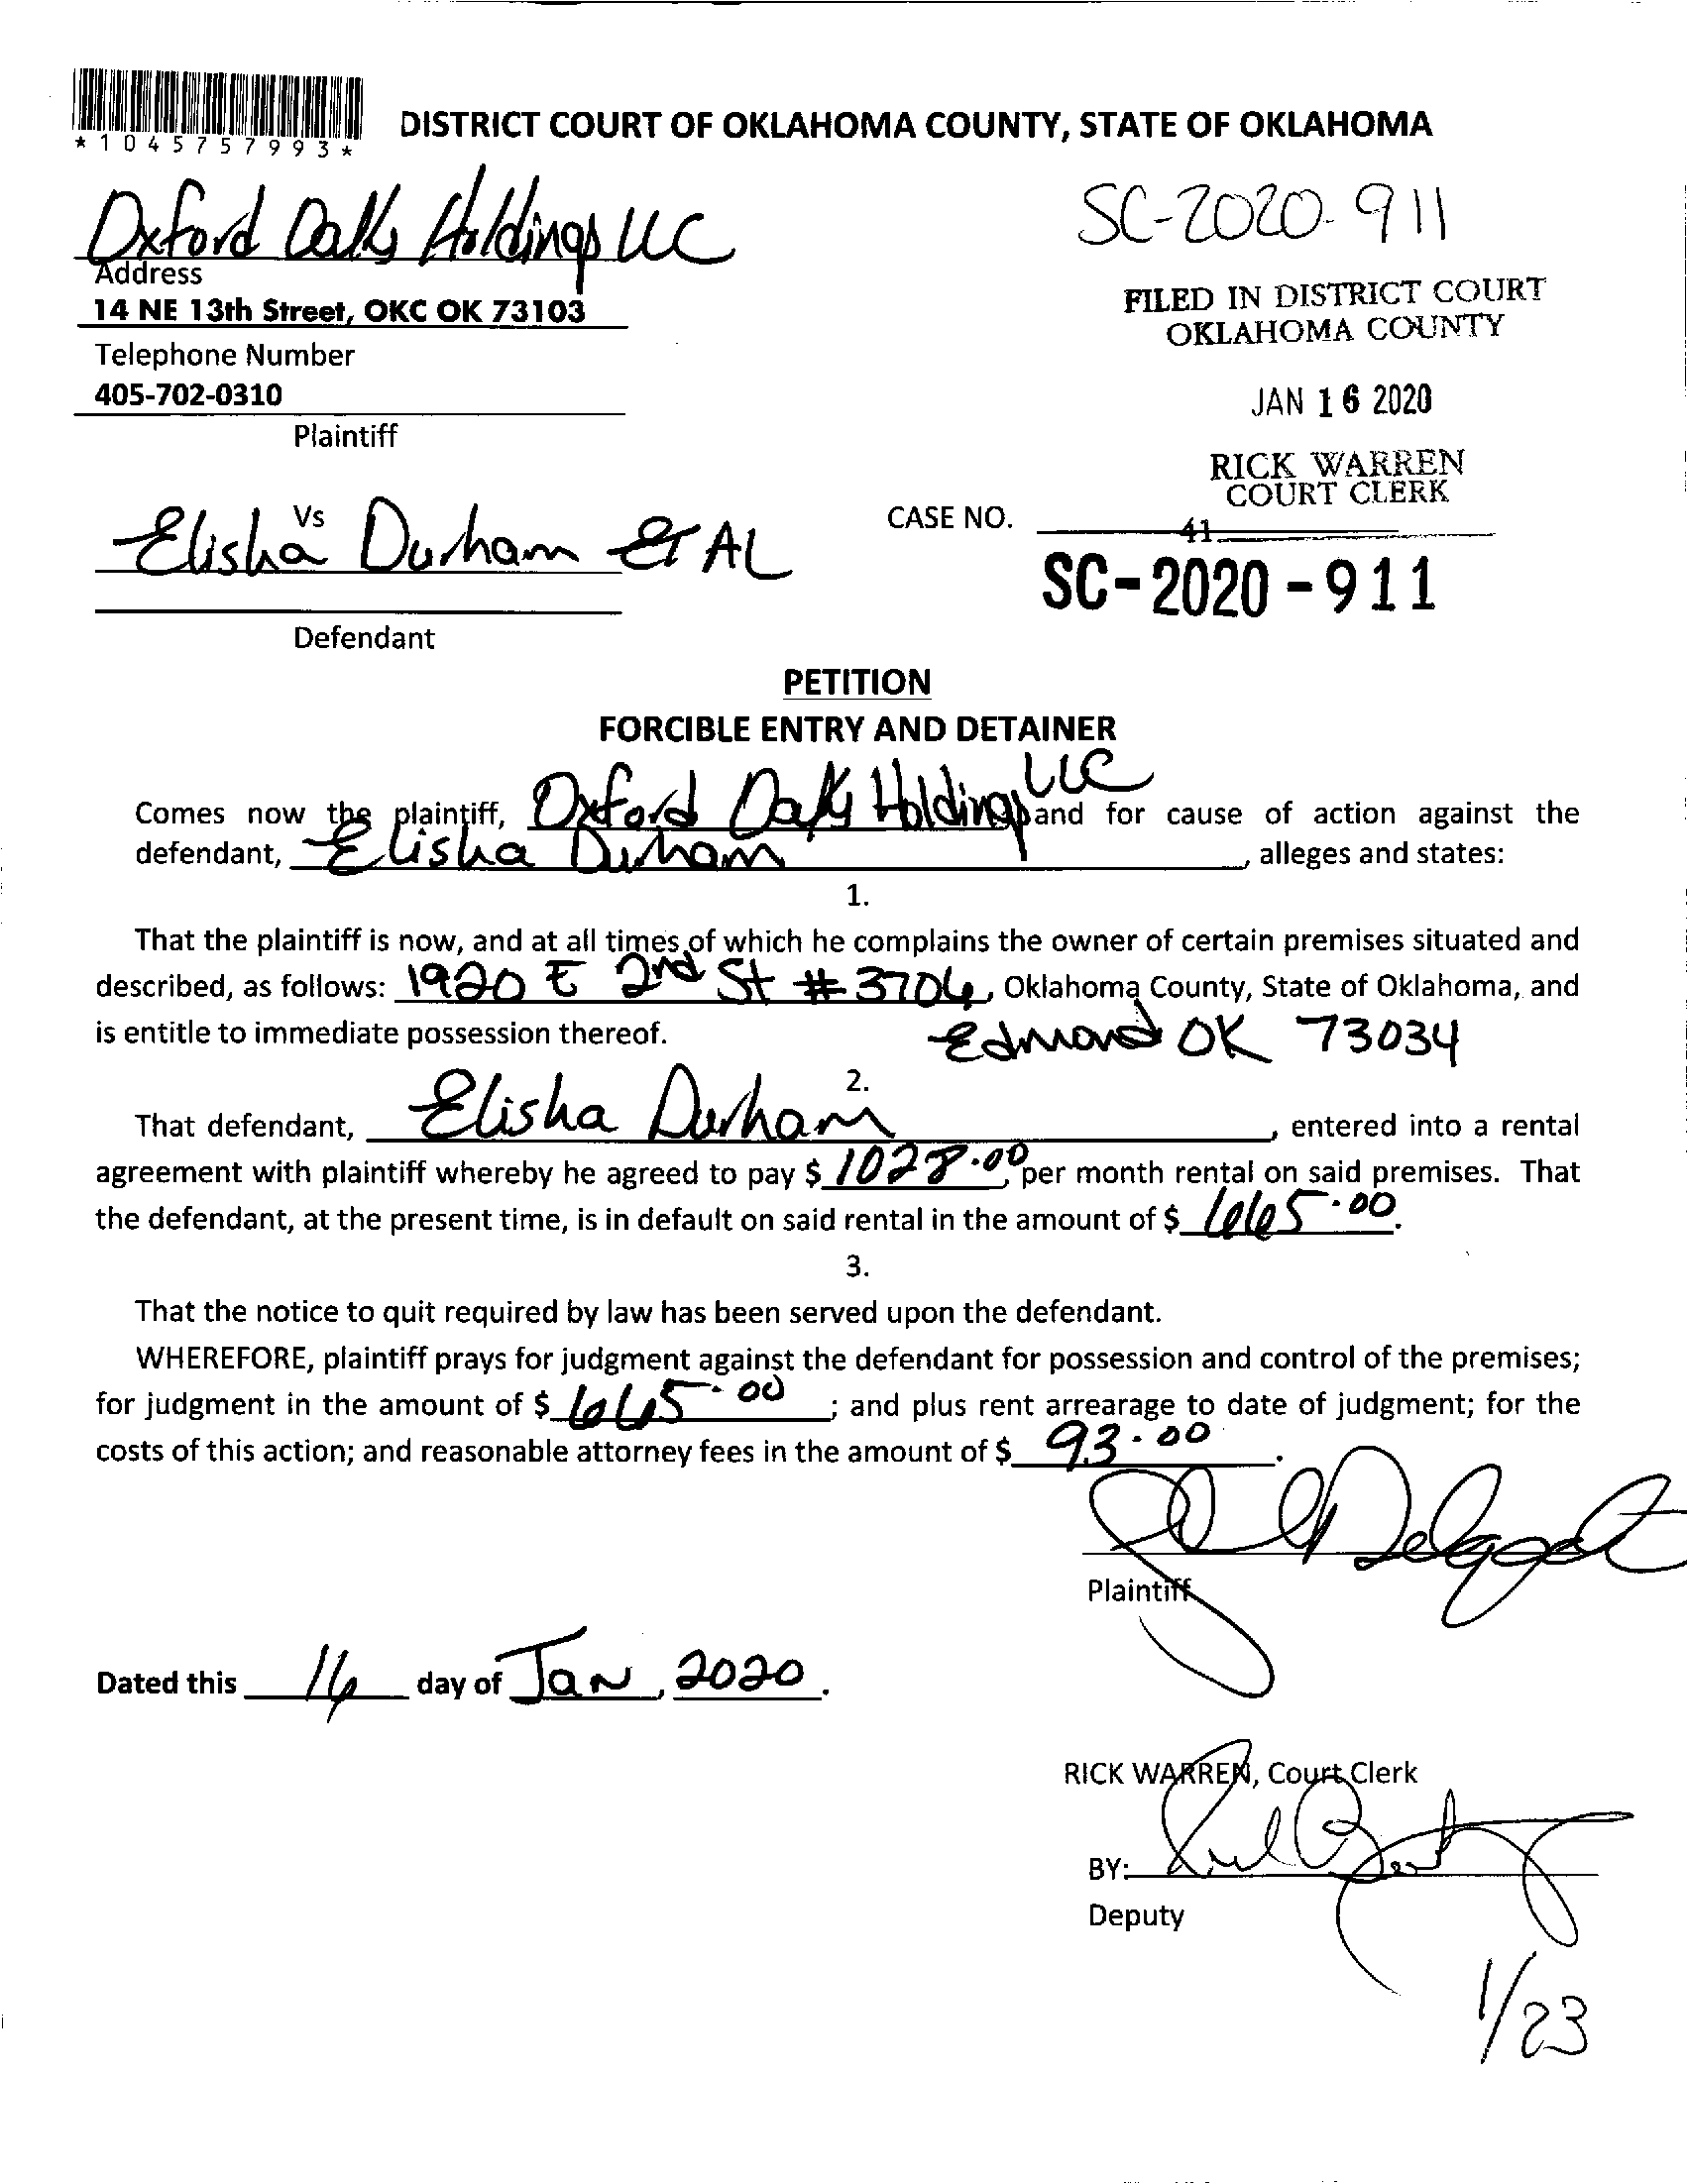 *1045757993*
DISTRICT COURT OF OKLAHOMA COUNTY, STATE OF OKLAHOMA
Oxford Oaks Holdings LLC
SC-2020-911
Address
14 NE 13th Street, OKC OK 73103
FILED IN DISTRICT COURT
OKLAHOMA COUNTY
Telephone Number
405-702-0310
JAN 16 2020
Plaintiff
RICK WARREN
COURT CLERK
Vs
CASE NO.
41
Elisha Durham ET AL
SC-2020-911
Defendant
PETITION
FORCIBLE ENTRY AND DETAINER
Comes now the plaintiff, Oxford Oaks Holdings LLC and for cause of action against the
defendant, Elisha Durham, alleges and states:
1.
That the plaintiff is now, and at all times of which he complains the owner of certain premises situated and
described, as follows: 1920 E 2nd St # 3706, Oklahoma County, State of Oklahoma, and
is entitle to immediate possession thereof. Edmond OK 73034
2.
That defendant, Elisha Durham, entered into a rental
agreement with plaintiff whereby he agreed to pay $ 1028.00, per month rental on said premises. That
the defendant, at the present time, is in default on said rental in the amount of $ 665.00.
3.
That the notice to quit required by law has been served upon the defendant.
WHEREFORE, plaintiff prays for judgment against the defendant for possession and control of the premises;
for judgment in the amount of $ 665.00; and plus rent arrearage to date of judgment; for the
costs of this action; and reasonable attorney fees in the amount of $ 93.00.
Plaintiff
Dated this 16 day of JAN, 2020.
RICK WARREN, Court Clerk
BY:
Deputy
1/23